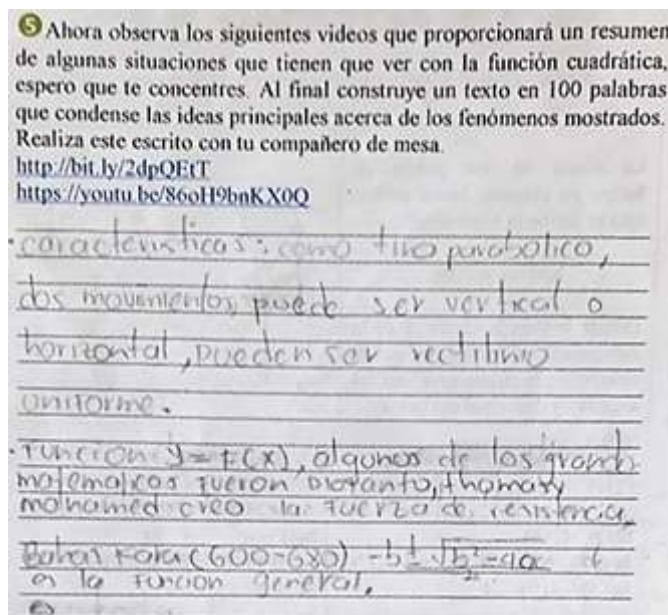 5 Ahora observa los siguientes videos que proporcionará un resumen
de algunas situaciones que tienen que ver con la función cuadrática,
espero que te concentres. Al final construye un texto en 100 palabras
que condense las ideas principales acerca de los fenómenos mostrados.
Realiza este escrito con tu compañero de mesa.
http://bit.ly/2dpQEtT
https://youtu.be/86oH9bnKX0Q
· caracteristicas: como tiro parabolico,
dos movimientos puede ser vertical o
horizontal, pueden ser rectilinio
uniforme.
· funcion y = f(x), algunos de los grandes
matematicos fueron Diofanto, thomas y
mohamed creo la fuerza de resistencia,
(600-680) -b± √b²-4ac
es la funcion general,